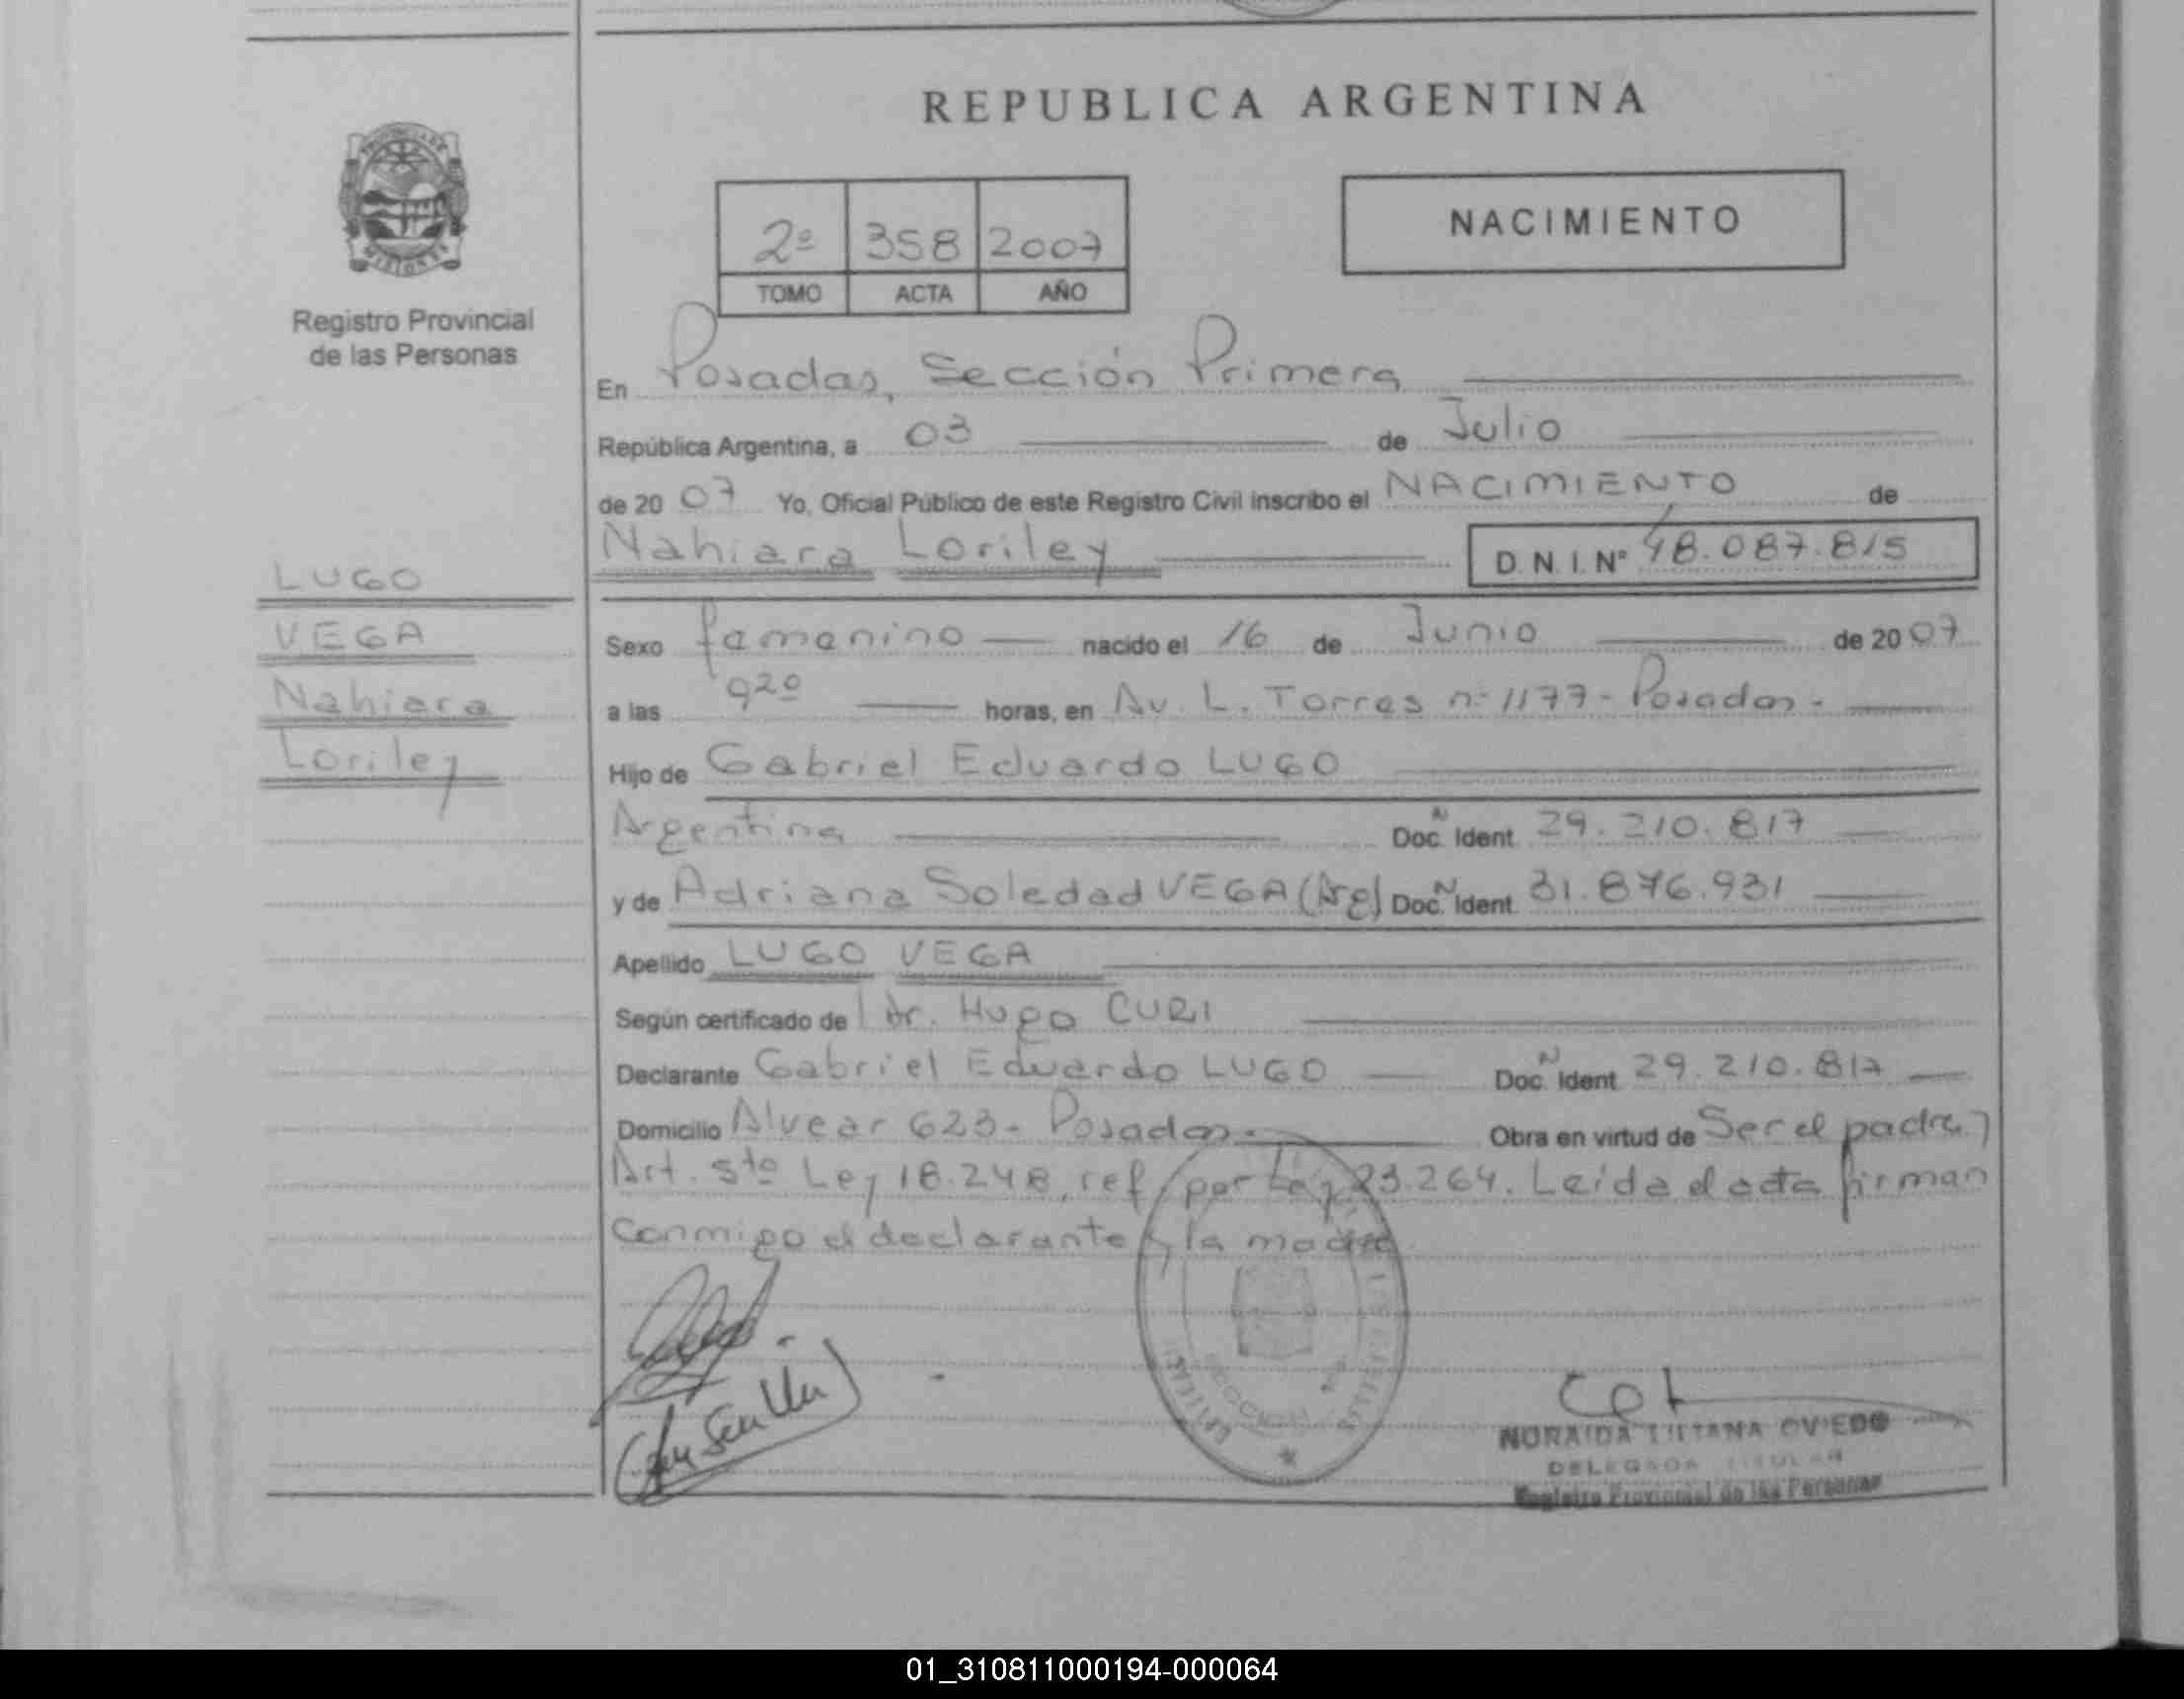 REPUBLICA ARGENTINA
NACIMIENTO
2º 358 2007
TOMO ACTA AÑO
Registro Provincial
de las Personas
En Posadas, Sección Primera
República Argentina, a 03 de Julio
de 20 07 Yo, Oficial Público de este Registro Civil inscribo el NACIMIENTO de
Nahiara Loriley D.N.I. Nº 48.087.815
LUGO
VEGA
Nahiara
Loriley
Sexo femenino nacido el 16 de Junio de 20 07
a las 9²⁰ horas, en Av. L. Torres nº 1177 - Posadas -
Hijo de Gabriel Eduardo LUGO
Argentina Doc. Ident. 29.210.817
y de Adriana Soledad VEGA (Arg) Doc. Ident. 31.876.931
Apellido LUGO VEGA
Según certificado de Dr. Hugo CURI
Declarante Gabriel Eduardo LUGO Doc. Ident. 29.210.817
Domicilio Alvear 623 - Posadas - Obra en virtud de Ser el padre y
Art. 5to Ley 18.248, ref por Ley 23.264. Leída el acta firman
conmigo el declarante y la madre
NORAIDA LILIANA OVIEDO
DELEGADA TITULAR
Registro Provincial de las Personas
01_310811000194-000064